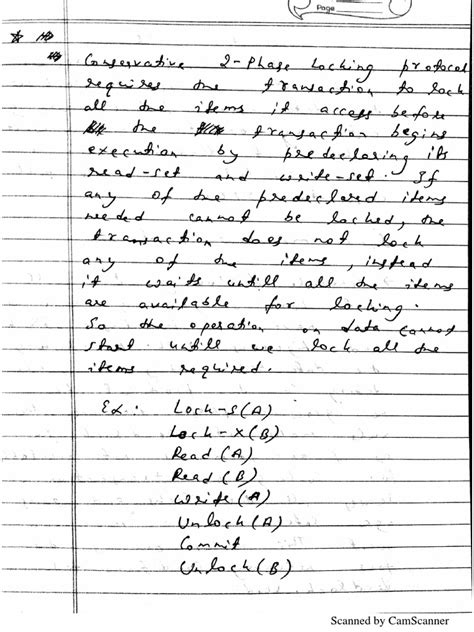 Page
Conservative 2-Phase Locking protocol
requires the transaction to lock
all the items it access before
the transaction begins
execution by predeclaring its
read-set and write-set. If
any of the predeclared items
needed cannot be locked, the
transaction does not lock
any of the items, instead
it waits untill all the items
are available for locking.
So the operation on data cannot
start untill we lock all the
items required.
Ex.: Lock-S(A)
Lock-X(B)
Read(A)
Read(B)
Write(A)
Unlock(A)
Commit
Unlock(B)
Scanned by CamScanner